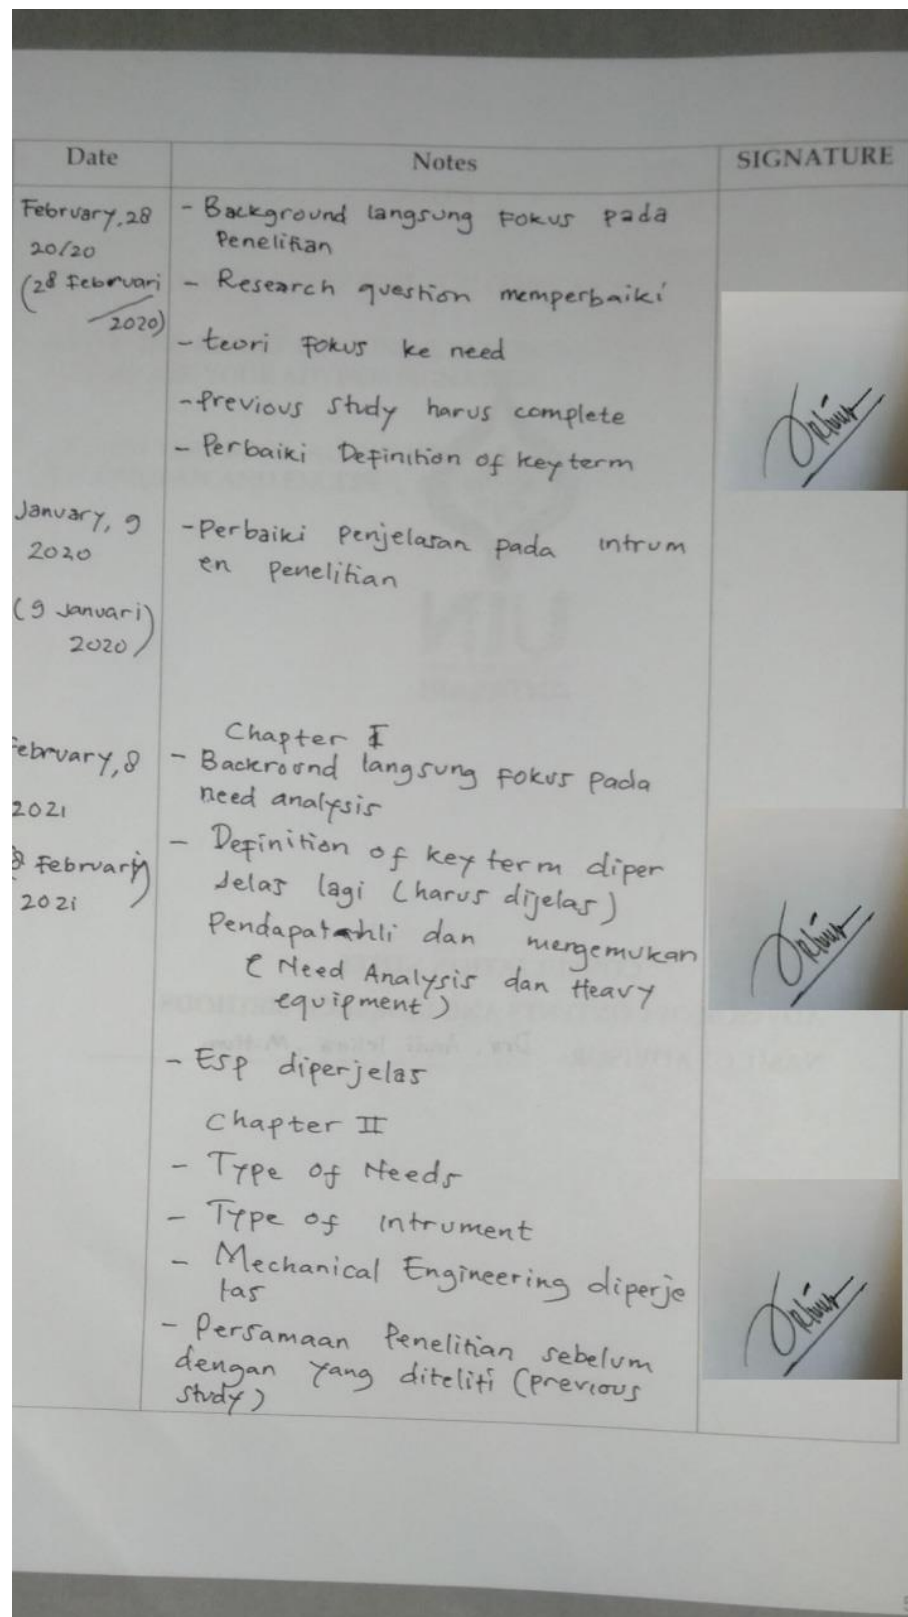 Date Notes SIGNATURE
February, 28 - Background langsung Fokus pada
20/20 Penelitian
(28 Februari - Research question memperbaiki
/2020)
- teori Fokus ke need
- Previous Study harus complete
- Perbaiki Definition of key term
January, 9 - Perbaiki Penjelasan pada intrum
2020 en penelitian
(9 Januari)
2020
Chapter I
February, 8 - Backround langsung Fokus pada
2021 need analysis
8 Februari) - Definition of key term diper
2021 Jelas lagi (harus dijelas)
Pendapatahli dan mengemukan
(Need Analysis dan Heavy
equipment)
- Esp diperjelas
Chapter II
- Type of Needs
- Type of intrument
- Mechanical Engineering diperje
las
- Persamaan Penelitian sebelum
dengan yang diteliti (previous
study)